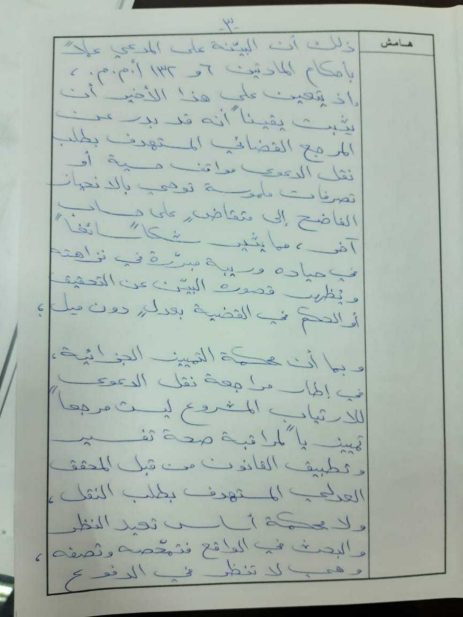 -٣-
هامش
ذلك أن البيّنة على المدعي عملاً
بأحكام المادتين ٦ و ١٣٢ أ.م.م. ،
إذ يتعين على هذا الأخير أن
يثبت يقيناً أنه قد بدر عن
المرجع القضائي المستهدف بطلب
نقل الدعوى مواقف حسية أو
تصرفات ملموسة توحي بالانحياز
الفاضح إلى متقاضٍ على حساب
آخر، مما يثير شكاً سائغاً
في حياده وريبة مبرّرة في نزاهته
وتظهر قصوره البيّن عن التحقيق
أو الحكم في القضية بعدلٍ دون ميل ،
وبما أن محكمة التمييز الجزائية ،
في إطار مراجعة نقل الدعوى
للارتياب المشروع ليست مرجعاً
تمييزياً لمراقبة صحة تفسير
وتطبيق القانون من قبل المحقق
العدلي المستهدف بطلب النقل ،
ولا محكمة أساس تعيد النظر
والبحث في الواقع فتمحّصه وتصفه ،
وهي لا تنظر في الدفوع